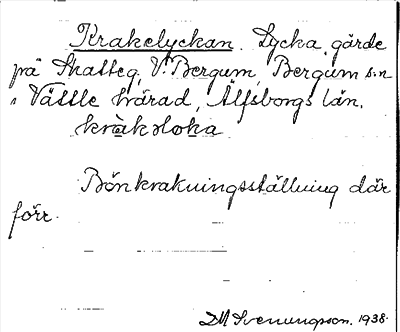 Krakelyckan. Lycka, gärde
på Skatteg, V. Bergum, Bergum s:n
i Vättle härad, Älfsborgs län.
kràkəloka
Bönkrakningsställning där
förr.
DM Svenungsson. 1938.